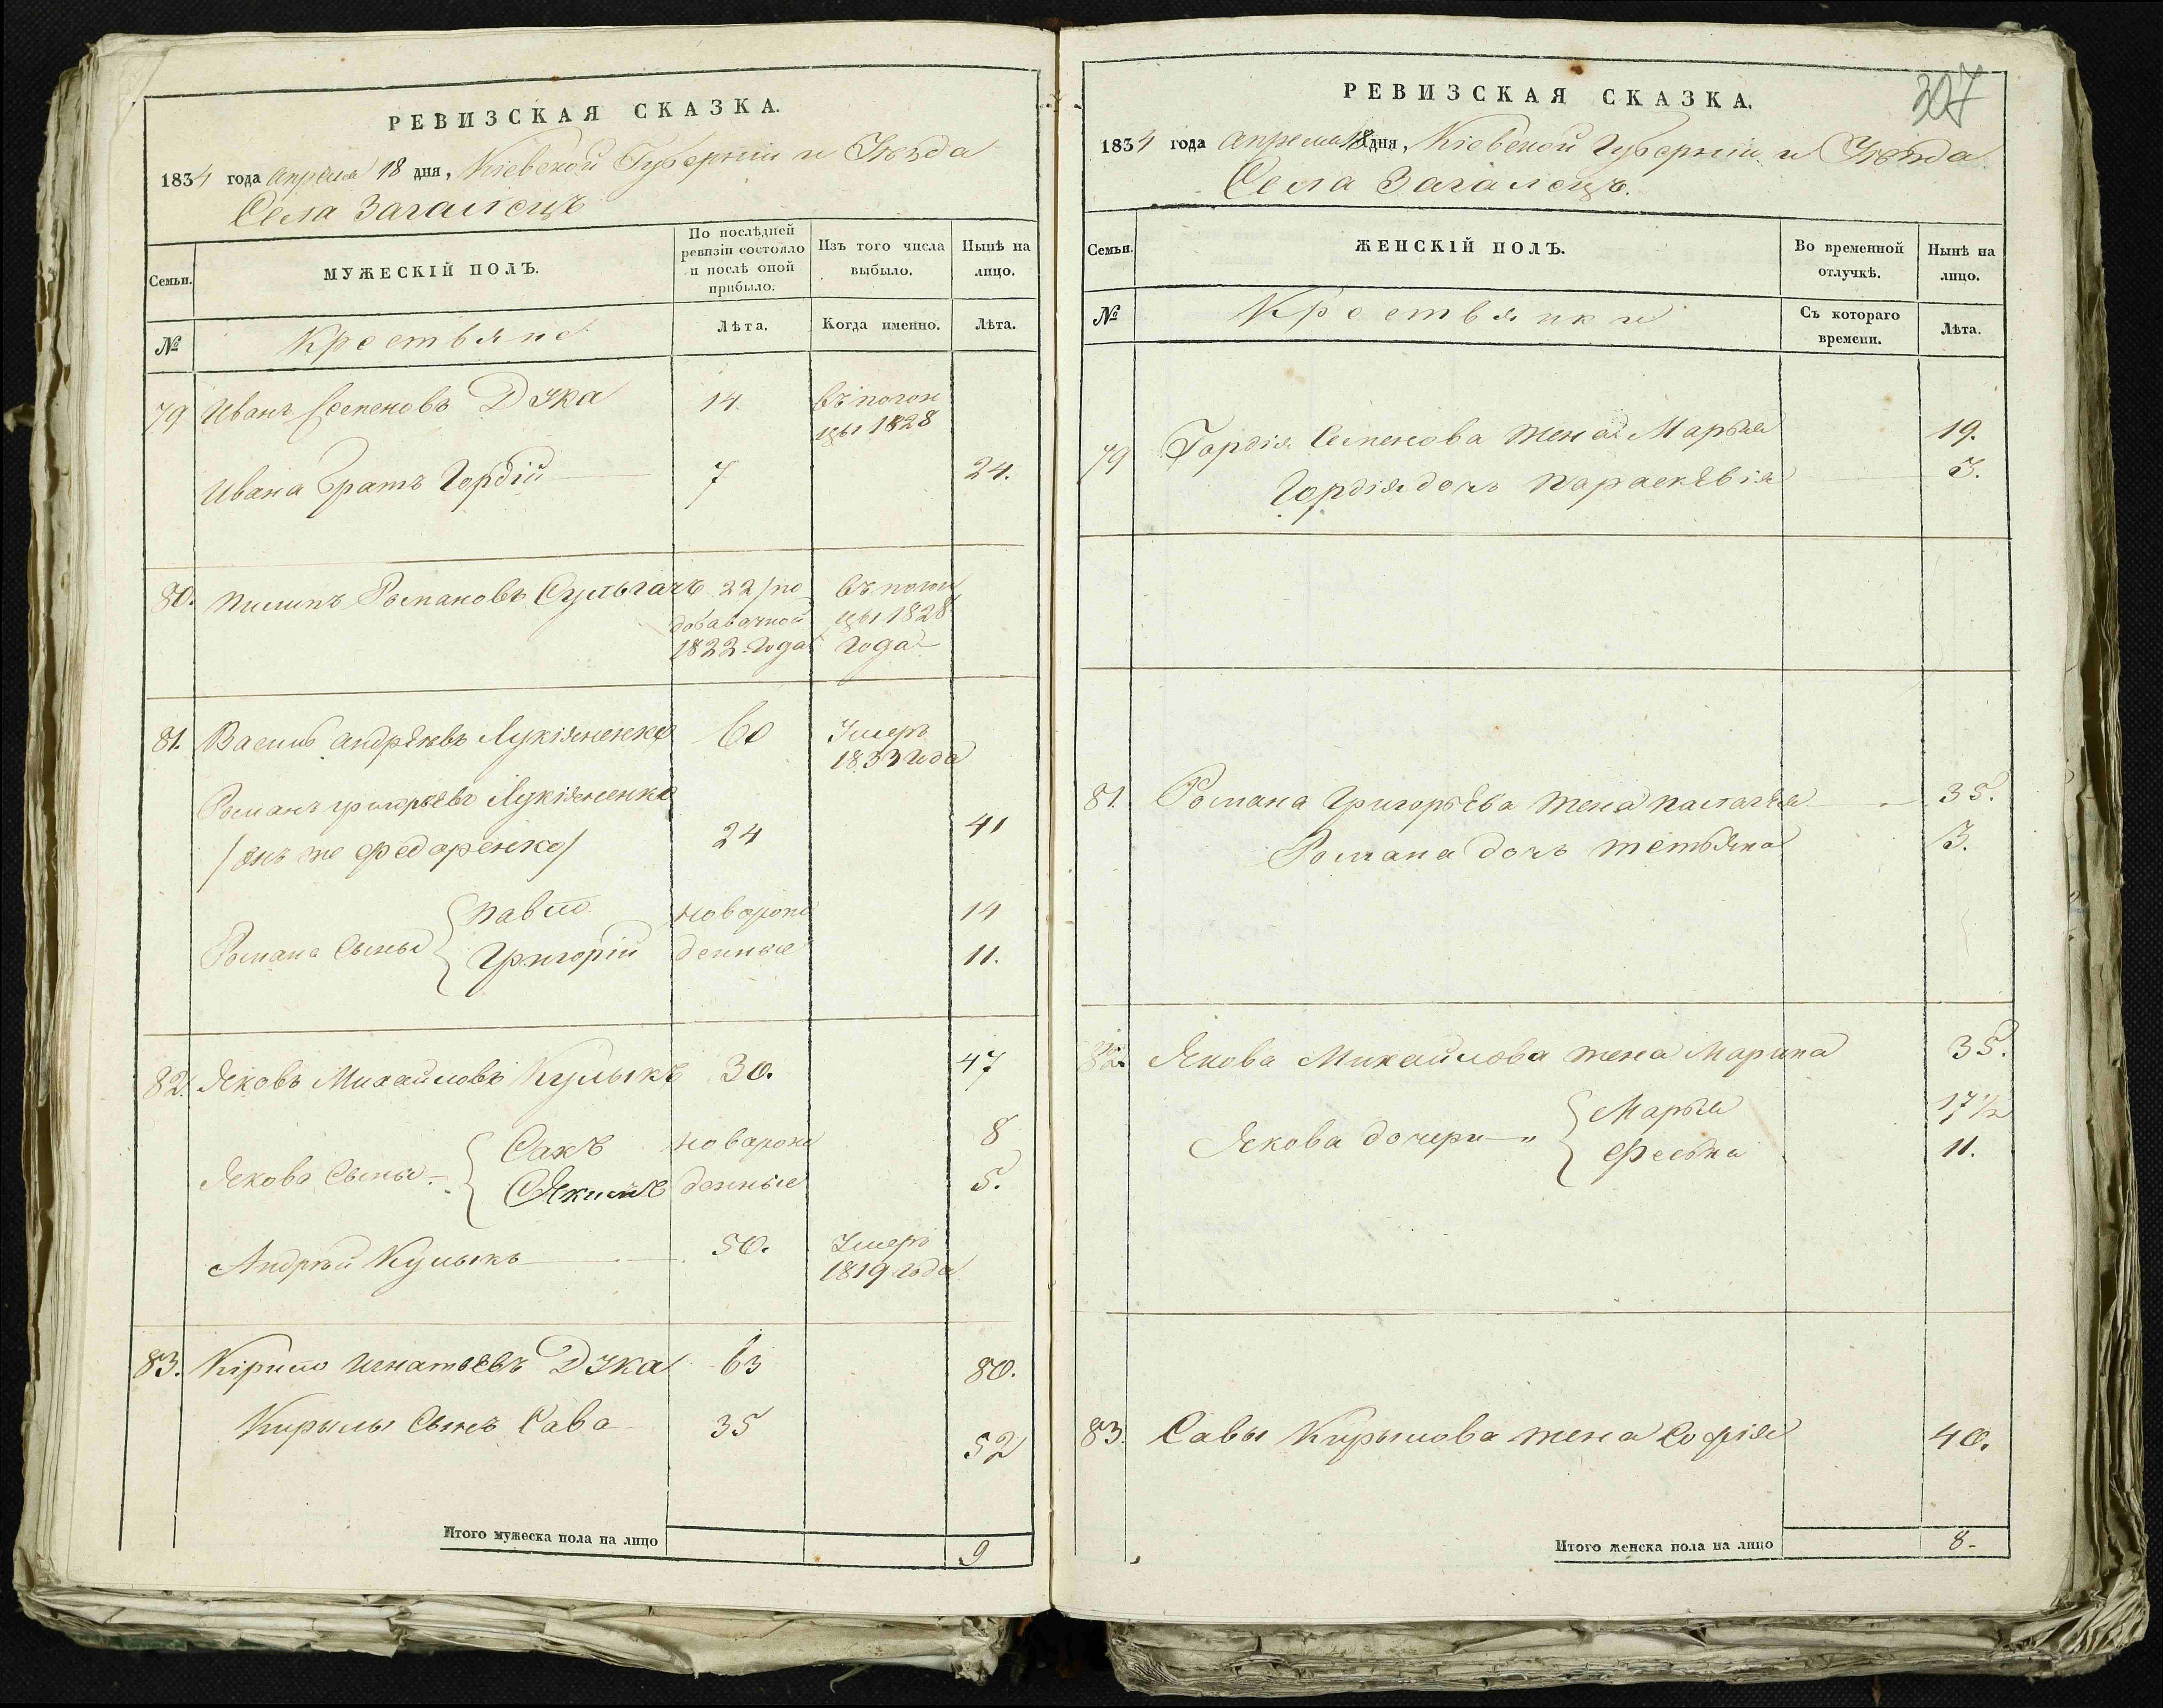 РЕВИЗСКАЯ СКАЗКА.
1834 года апреля 18 дня, Кіевской Губерніи и Уѣзда
Села Загалецъ
Семьи.
МУЖЕСКІЙ ПОЛЪ.
По послѣдней ревизіи состояло и послѣ оной прибыло.
Изъ того числа выбыло.
Нынѣ на лицо.
№
Крестьяне
Лѣта.
Когда именно.
Лѣта.
79 Иванъ Семеновъ Дука 14. въ погон
цы 1828
Ивана братъ Гордій 7 24.
80. Пилипъ Романовъ Сульгачъ 22 /по въ погон
добавочной цы 1828
1822 года/ года
81. Василь Андрѣевъ Лукіяненко 60 Умеръ
1833 года
Романъ Григорьевъ Лукіяненко
/онъ же Федоренко/ 24 41
Романа Сыны Павло новорож 14
Григорій денные 11.
82. Яковъ Михайловъ Кулыкъ 30. 47
Якова Сыны Сакъ новорож 8
Якимъ денные 5.
Андрѣй Кулыкъ 50. Умеръ
1819 года
83. Кірило Игнатьевъ Дука 63 80.
Кирылы Сынъ Сава 35 52
Итого мужеска пола на лицо 9
307
РЕВИЗСКАЯ СКАЗКА.
1834 года апреля 18 дня, Кіевской Губерніи и Уѣзда
Села Загалецъ.
Семьи.
ЖЕНСКІЙ ПОЛЪ.
Во временной отлучкѣ.
Нынѣ на лицо.
№
Крестьянки
Съ котораго времени.
Лѣта.
79 Гордія Семенова жена Марья 19.
Гордія дочь Параскѣвія 3.
81. Романа Григорьева жена Палагея 35.
Романа дочь Тетьяна 3.
82. Якова Михайлова жена Марина 35.
Якова дочери Марья 17 1/2
Феська 11.
83. Савы Кирылова жена Софія 40.
Итого женска пола на лицо 8